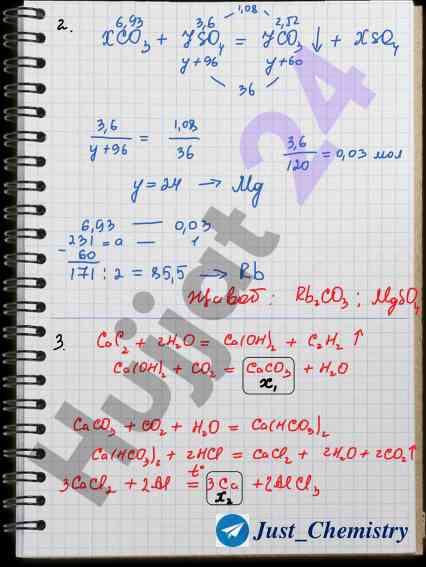 1,08
6,93 3,6 2,52
2. XCO₃ + YSO₄ = YCO₃ ↓ + XSO₄
y+96 y+60
36
3,6 / y+96 = 1,08 / 36
3,6 / 120 = 0,03 мол
y=24 → Mg
6,93 — 0,03
231 = a — 1
- 60
171 : 2 = 85,5 → Rb
Жавоб: Rb₂CO₃ ; MgSO₄
3. CaC₂ + 2H₂O = Ca(OH)₂ + C₂H₂ ↑
Ca(OH)₂ + CO₂ = CaCO₃ + H₂O
X₁
CaCO₃ + CO₂ + H₂O = Ca(HCO₃)₂
Ca(HCO₃)₂ + 2HCl = CaCl₂ + 2H₂O + 2CO₂↑
3CaCl₂ + 2Al =t° 3Ca + 2AlCl₃
X₂
Hujjat 24
Just_Chemistry